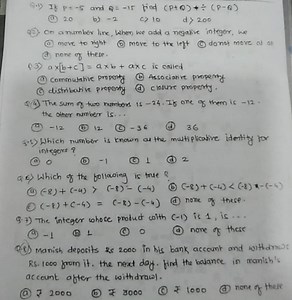 Q.1) If P = -5 and Q = -15 find (P+Q) ÷ (P-Q)
ⓐ 20 b) -2 c) 10 d) 200
Q2) On a number line, When we add a negative integer, we
ⓐ move to right ⓑ move to the left ⓒ donot move at all
ⓓ none of these.
Q.3) a×[b+c] = a×b + a×c is called
ⓐ commutative property ⓑ Associative property
ⓒ distributive property ⓓ closure property.
Q.4) The sum of two numbers is -24. If one of them is -12
the other number is...
ⓐ -12 ⓑ 12 ⓒ -36 ⓓ 36
Q.5) Which number is known as the multiplicative identity for
integers ?
ⓐ 0 ⓑ -1 ⓒ 1 ⓓ 2
Q6) Which of the following is true ?
ⓐ (-8) + (-4) > (-8) - (-4) ⓑ (-8) + (-4) < (-8) - (-4)
ⓒ (-8) + (-4) = (-8) - (-4) ⓓ none of these.
Q.7) The integer whose product with (-1) is 1, is ....
ⓐ -1 ⓑ 1 ⓒ 0 ⓓ none of these
Q8) Manish deposits Rs 2000 in his bank account and withdraws
Rs. 1000 from it. the next day. find the balance in manish's
account after the withdrawl.
ⓐ ₹ 2000 ⓑ ₹ 3000 ⓒ ₹ 1000 ⓓ none of these